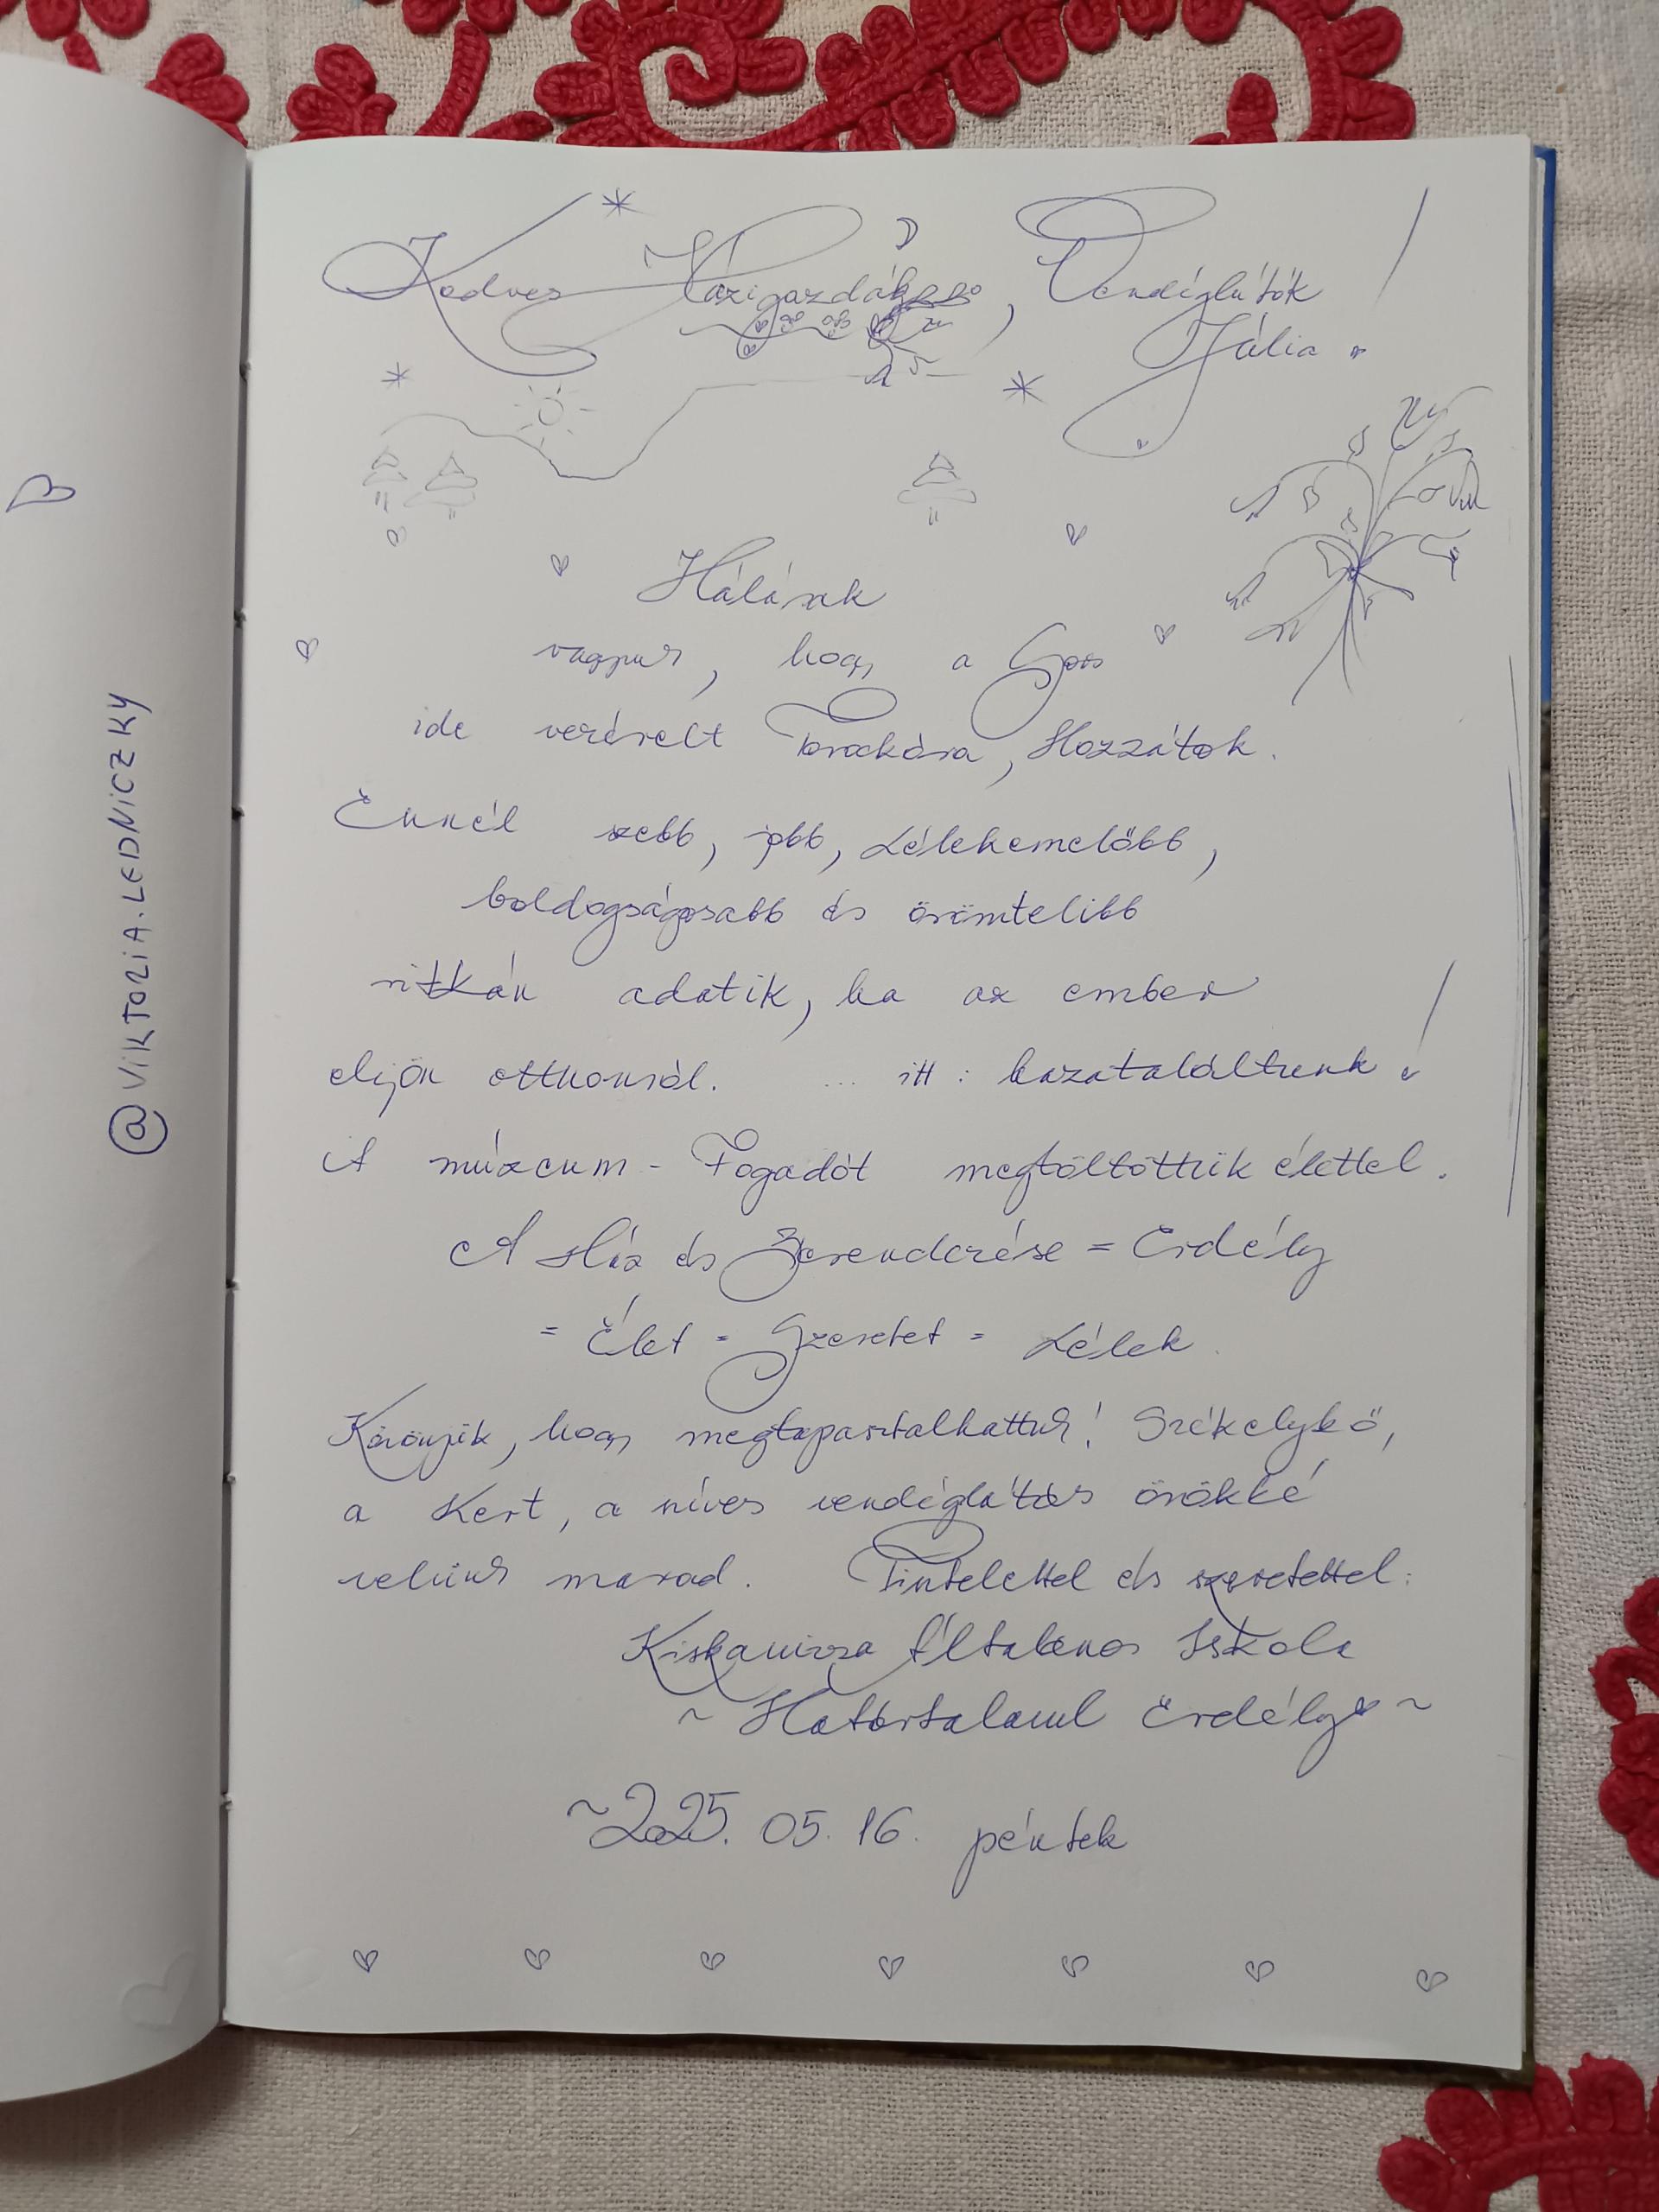 @VIKTORIA.LEDNICZKY
Kedves Házigazdák, Vendéglátók
Júlia !
Hálásak
vagyunk, hogy a Sors
ide vezérelt Torockóra, Hozzátok.
Ennél szebb, jobb, Lélekemelőbb,
boldogságosabb és örömtelibb
ritkán adatik, ha az ember
eljön otthonról. ... itt : hazataláltunk !
A múzeum - Fogadót megtöltöttük élettel.
A Ház és Berendezése = Erdély
= Élet = Szeretet = Lélek.
Köszönjük, hogy megtapasztalhattuk! Székelykő,
a Kert, a nívós vendéglátás örökké
velünk marad. Tisztelettel és szeretettel:
Kiskanizsa Általános Iskola
~ Határtalanul Erdély ~
~ 2025. 05. 16. péntek